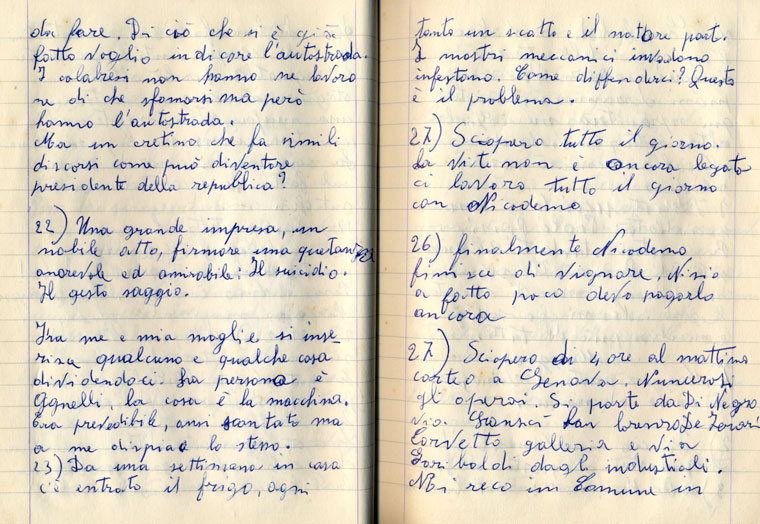 da fare. Di ciò che si è già
fatto voglio indicare l'autostrada.
I calabresi non hanno ne lavoro
ne di che sfamarsi ma però
hanno l'autostrada.
Ma un cretino che fa simili
discorsi come può diventare
presidente della republica?
22) Una grande impresa, un
nobile atto, firmare una
onorevole ed amirabile: Il suicidio.
Il gesto saggio.
Tra me e mia moglie si inse_
risce qualcuno e qualche cosa
dividendoci. La persona è
Agnelli, la cosa è la macchina.
Era prevedibile, anzi scontato ma
a me dispiace lo stesso.
23) Da una settimana in casa
c'è entrato il frigo, ogni
tanto un scatto e il motore part.
I mostri meccanici invadono
infestono. Come diffenderci? Questo
è il problema.
27) Sciopero tutto il giorno.
La vite non è ancora legata
ci lavoro tutto il giorno
con Nicodemo
26) finalmente Nicodemo
finisce di vignare. Nisio
a fatto poco devo pagarlo
ancora
27) Sciopero di 4 ore al mattino
corteo a Genova. Numerosi
gli operai. Si parte da Di Negro
via Gramsci San Lorenzo De Ferrari
Corvetto galleria e via
Garibaldi dagli industiali.
Mi reco in Comune in